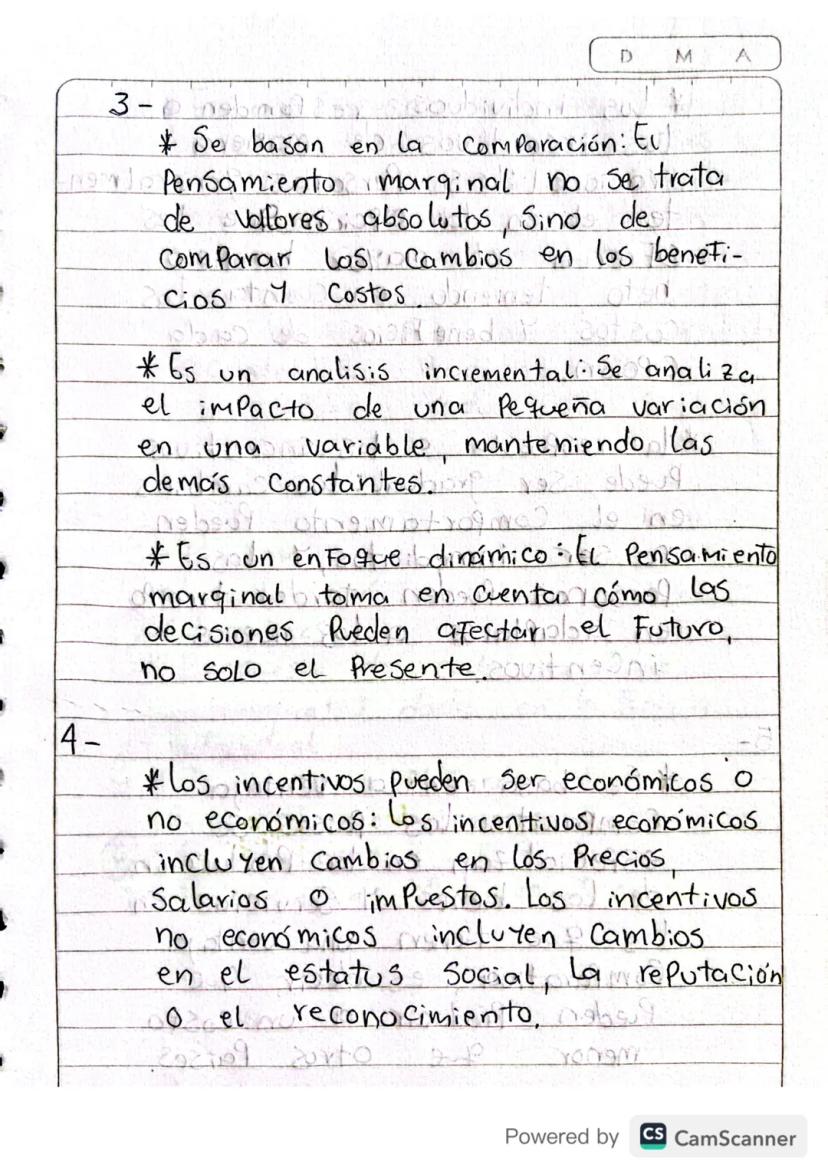 D M A
3-
* Se basan en la comparación: El
Pensamiento marginal no se trata
de valores absolutos, sino de
comparar los cambios en los benefi-
cios y costos
* Es un analisis incremental: Se analiza
el impacto de una pequeña variación
en una variable, manteniendo las
demás constantes.
* Es un enfoque dinámico: El pensamiento
marginal toma en cuenta cómo las
decisiones pueden afectar el futuro,
no solo el presente.
4-
* Los incentivos pueden ser económicos o
no económicos: Los incentivos económicos
incluyen cambios en los precios,
salarios o impuestos. Los incentivos
no económicos incluyen cambios
en el estatus social, la reputación
o el reconocimiento.
Powered by CS CamScanner